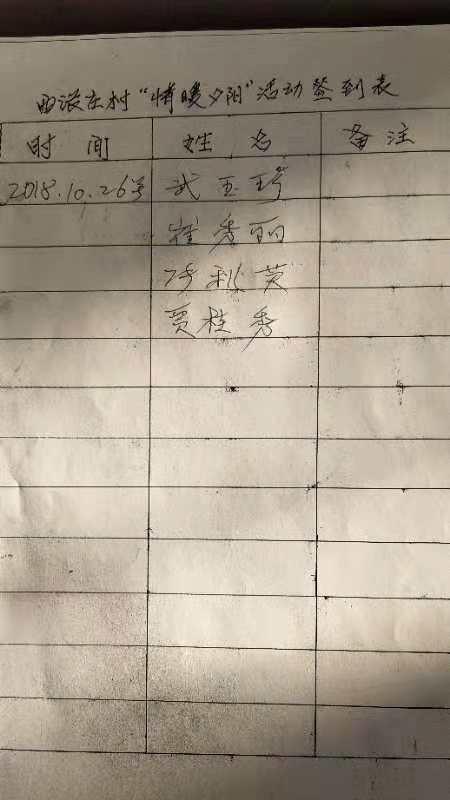 西滋左村“情暖夕阳”活动签到表
时间 姓名 备注
2018.10.26号 武玉珍
崔秀丽
秋英
贾桂秀